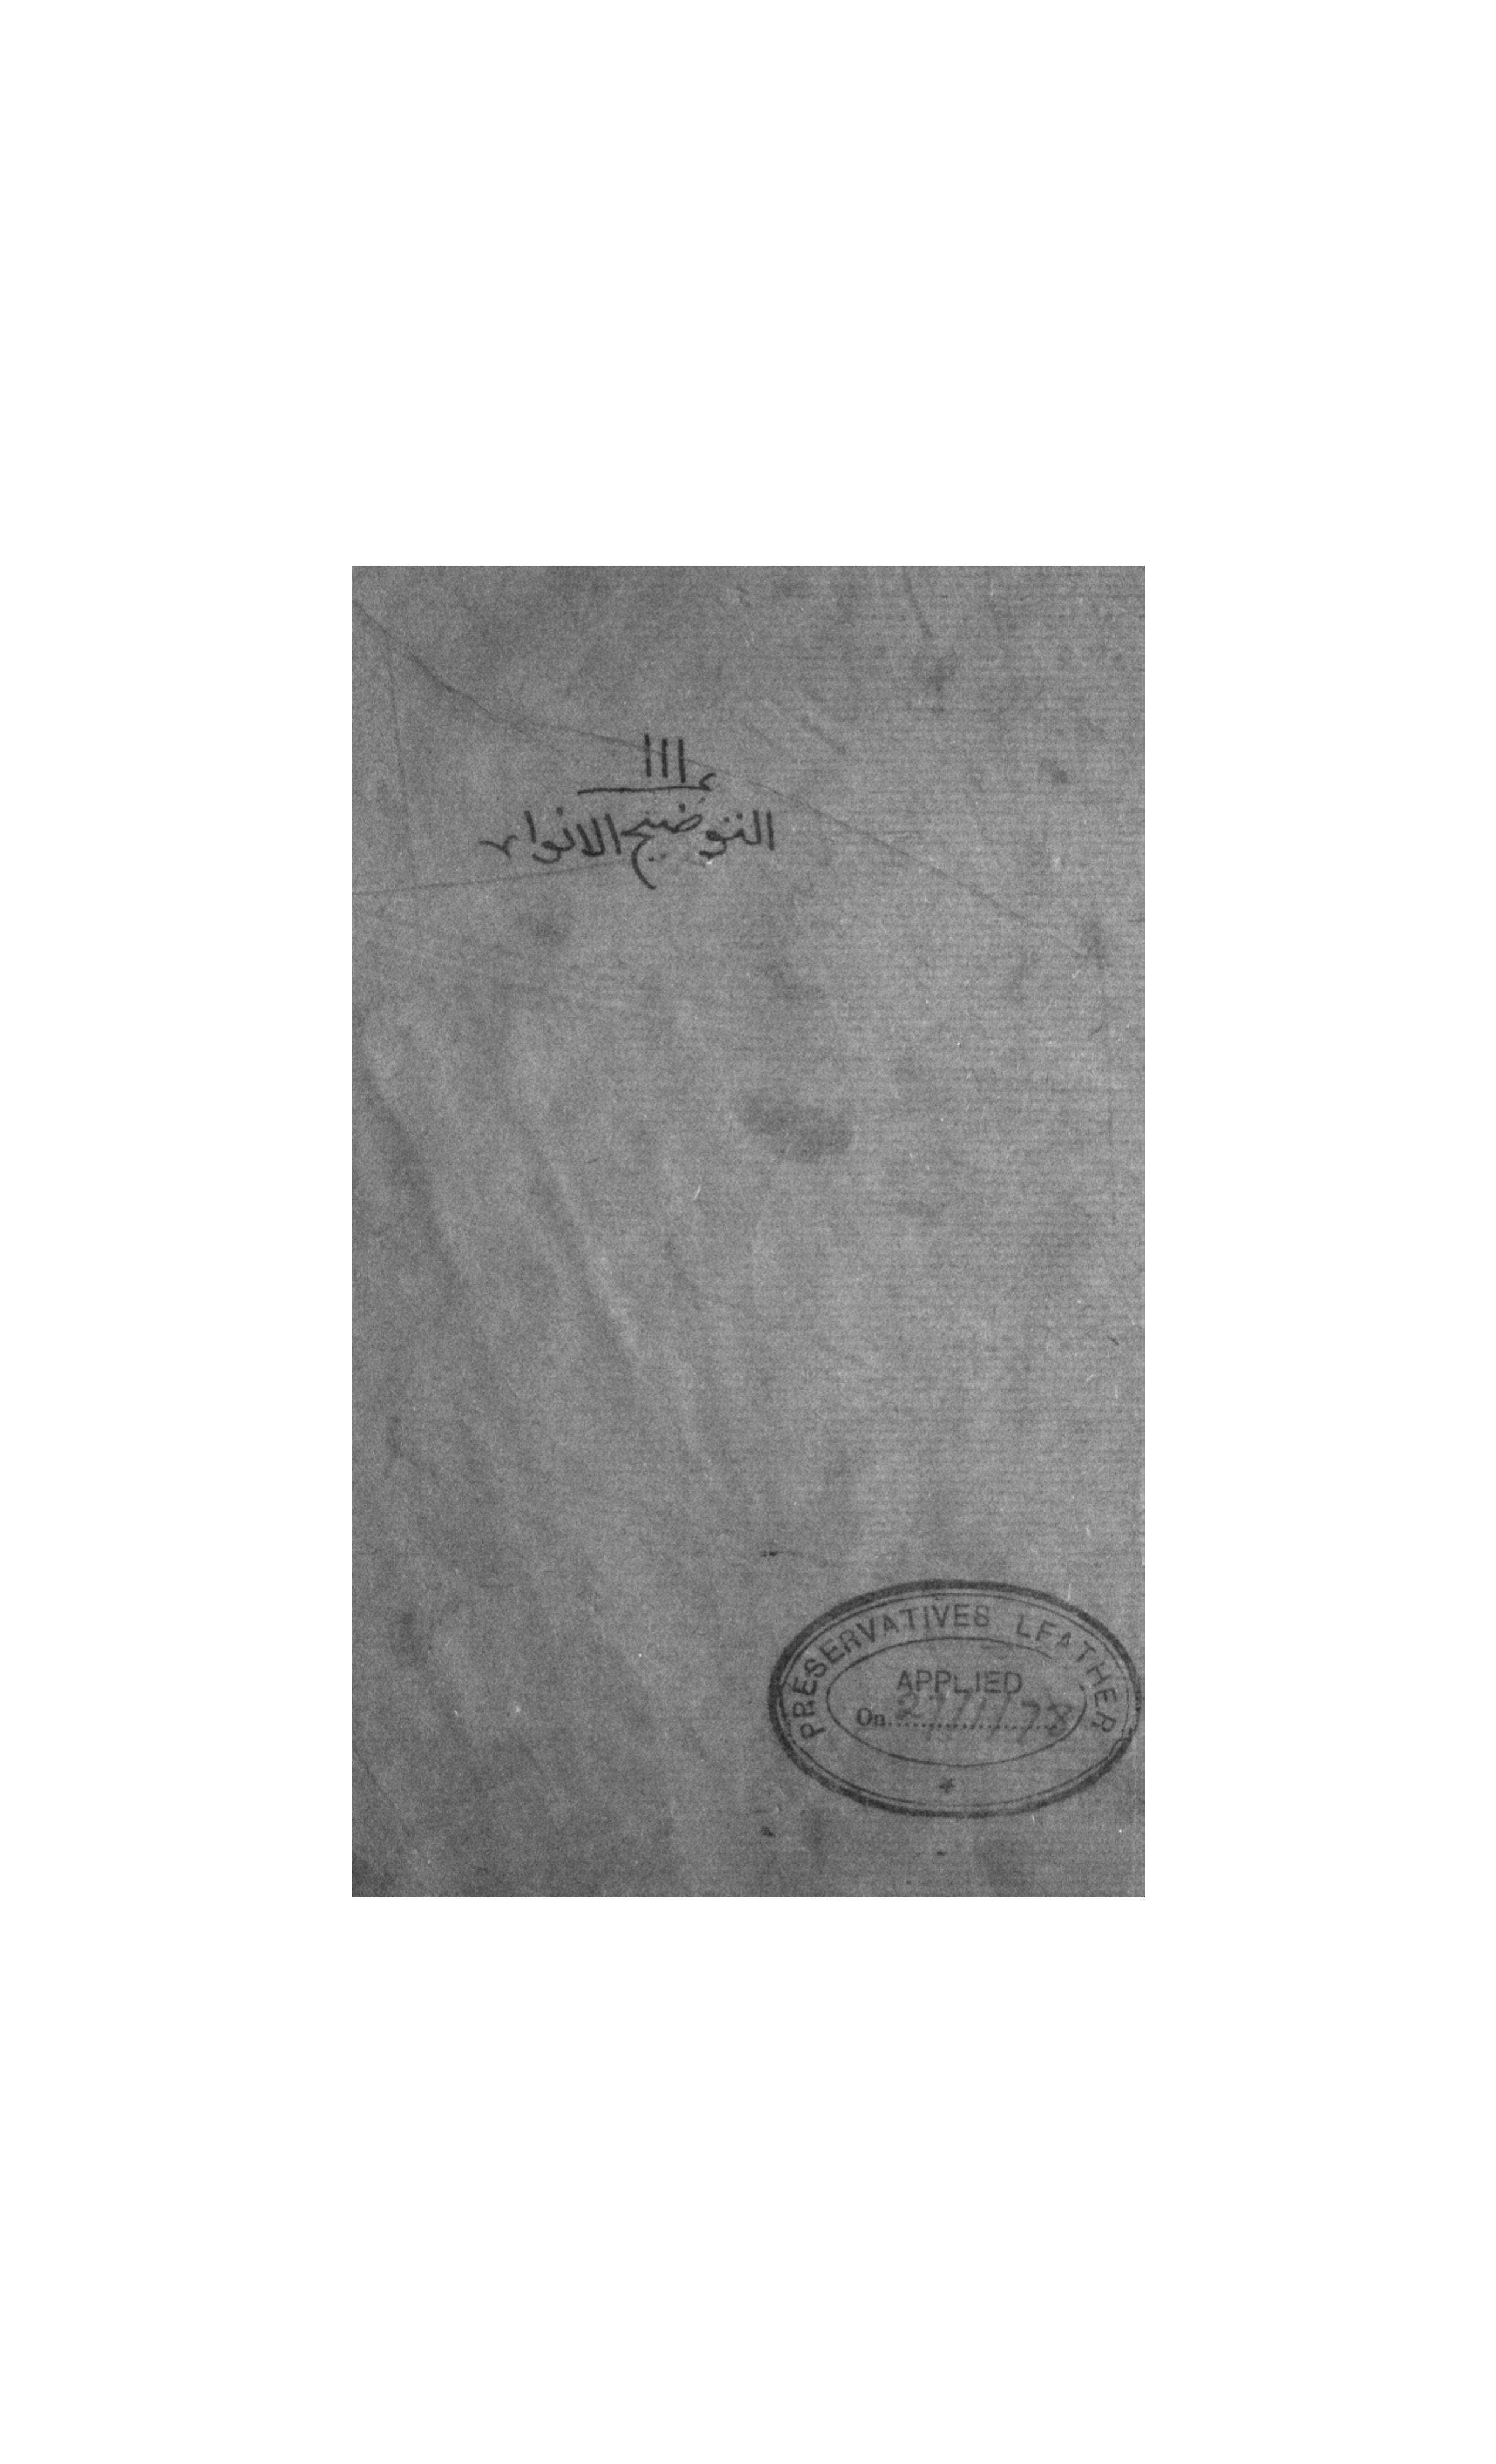 ١١١
التوضيح الانوار
PRESERVATIVES LEATHER
APPLIED
On